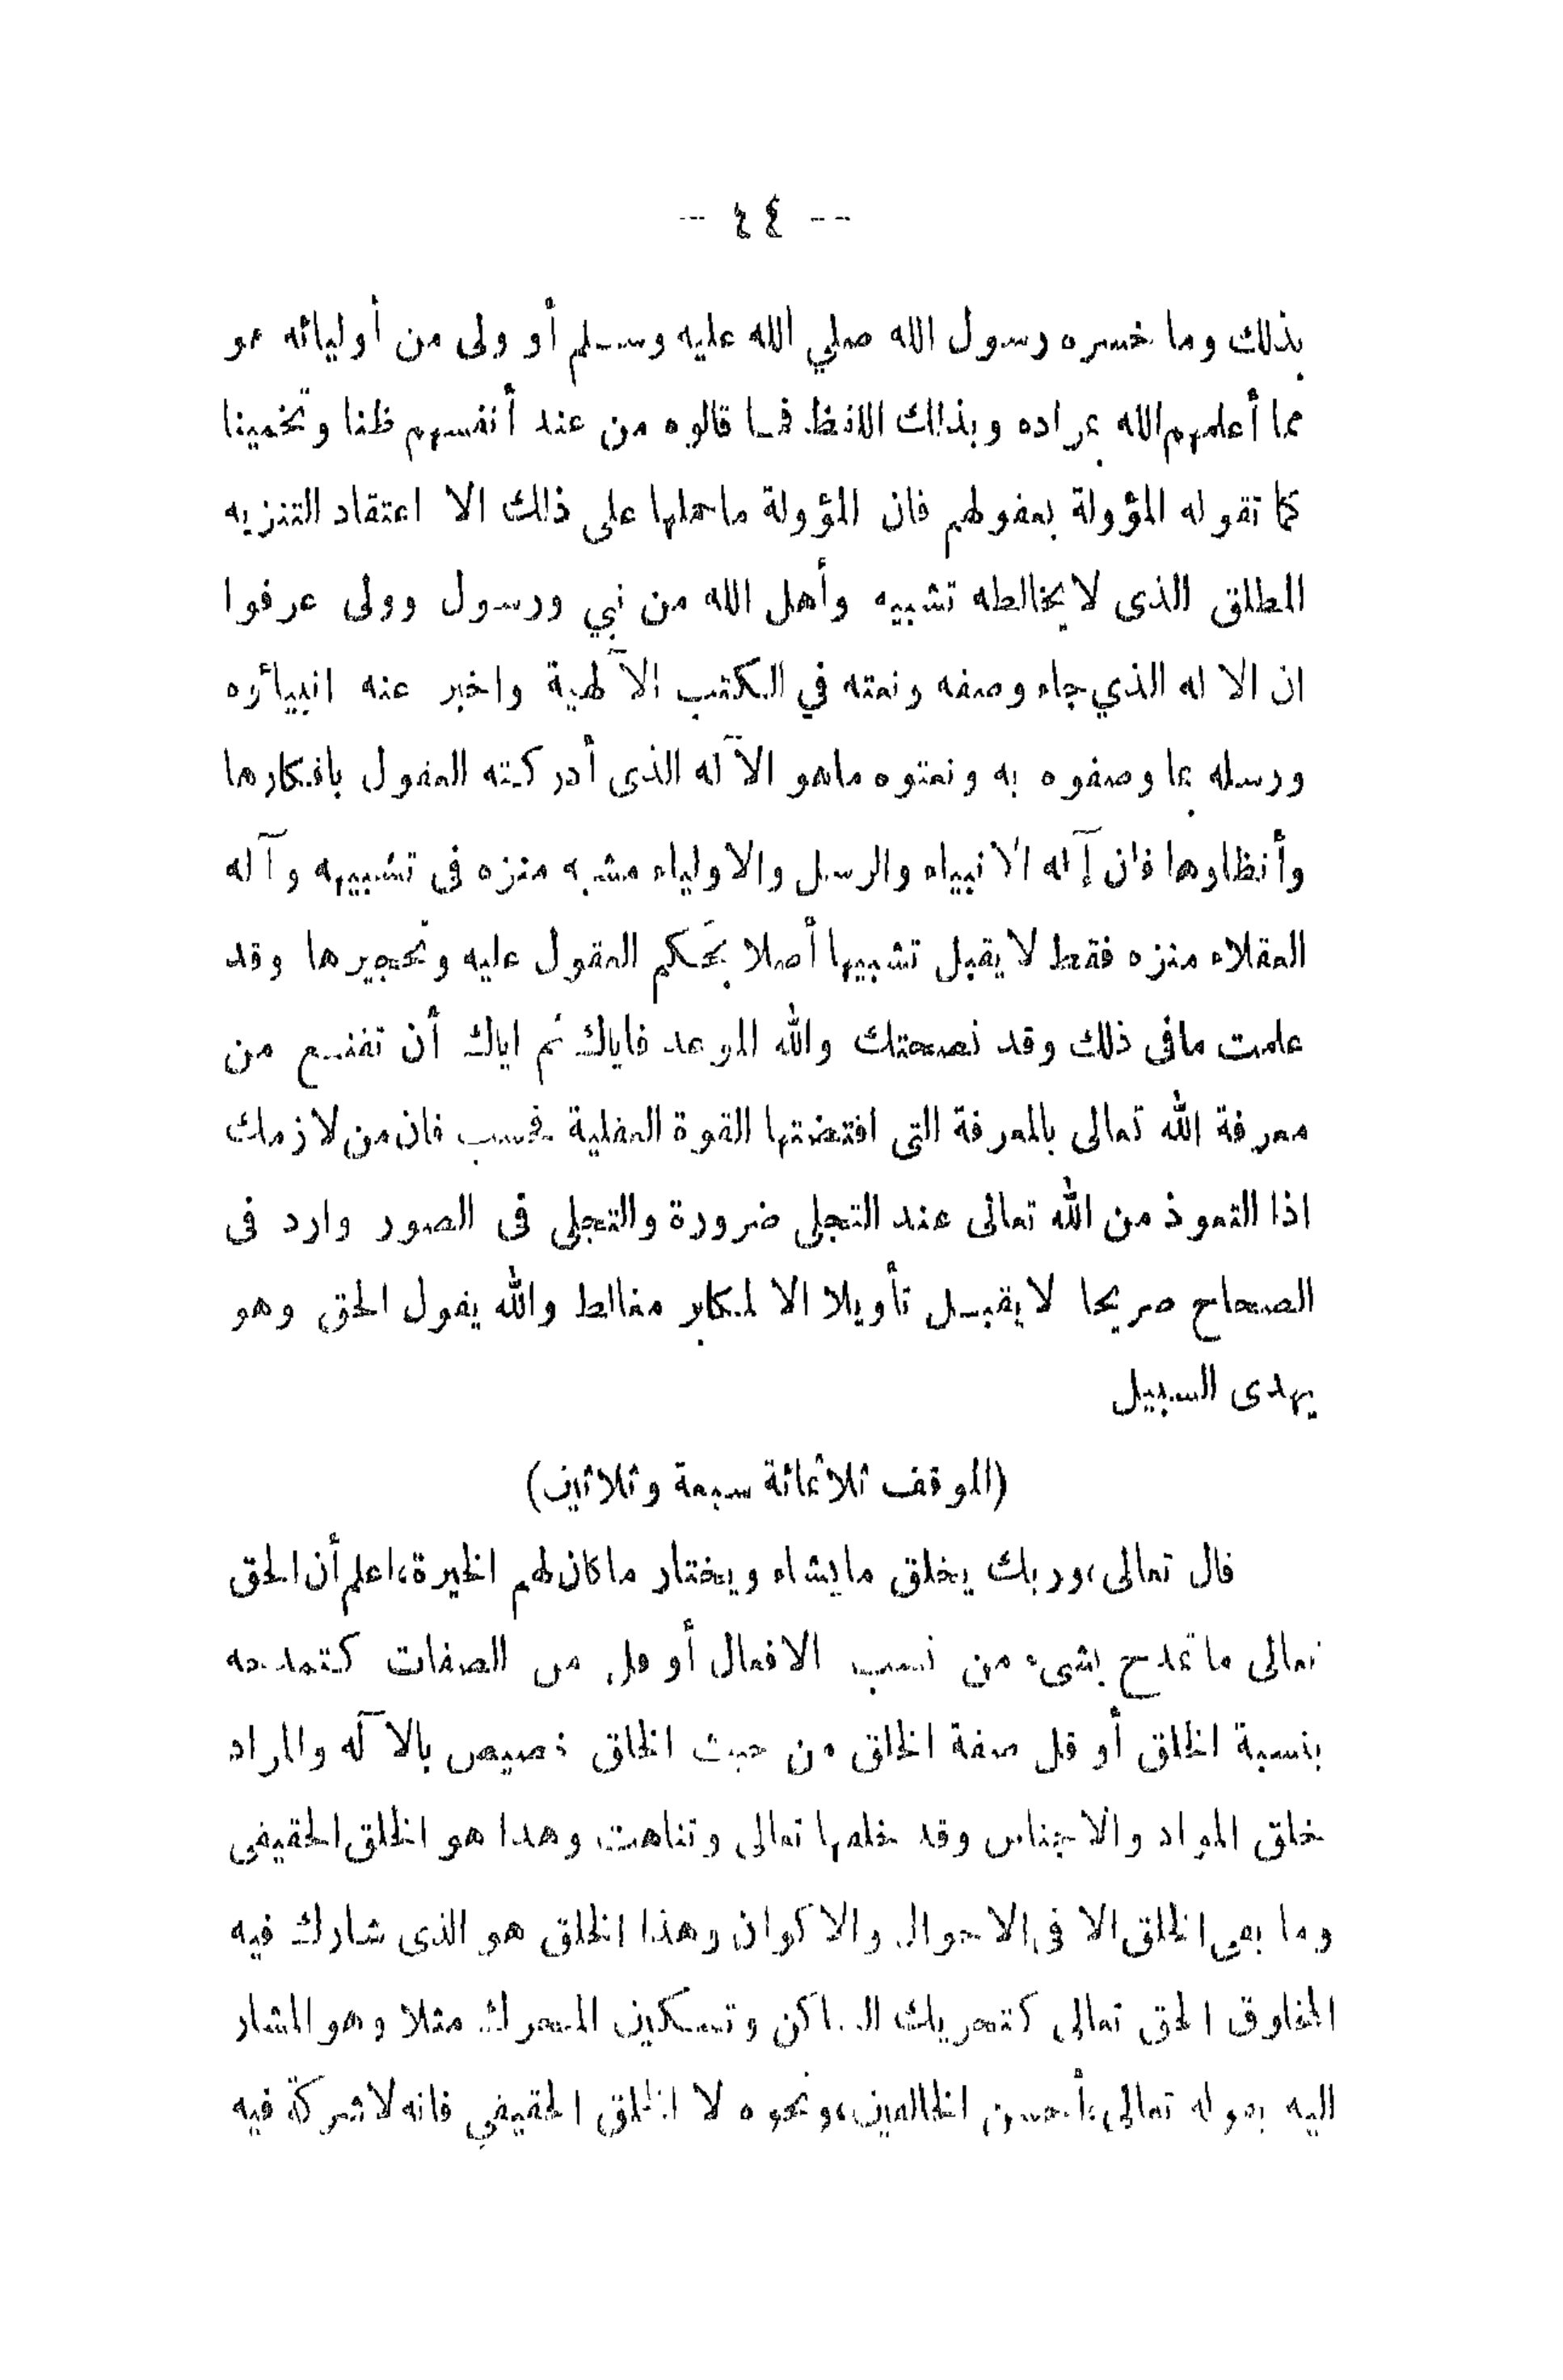 -- ٤٤ --
بذلك وما خسره رسول الله صلي الله عليه وسلم أو ولى من أوليائه هو
مما أعلمهم الله بمراده وبذلك اللفظ فما قالوه من عند أنفسهم ظنا وتخمينا
كما تقوله المؤولة بعقولهم فان المؤولة ماحملها على ذلك الا اعتقاد التنزيه
المطلق الذى لا يخالطه تشبيه وأهل الله من نبي ورسول وولى عرفوا
ان الا له الذي جاء وصفه ونعته في الكتب الآلهية واخبر عنه انبياؤه
ورسله بما وصفوه به ونعتوه ماهو الآله الذى أدركته العقول بافكارها
وأنظاوها فان إآله الانبياء والرسل والاولياء مشبه منزه فى تشبيهه وآله
العقلاء منزه فقط لا يقبل تشبيها أصلا بحكم العقول عليه وتحجيرها وقد
علمت مافى ذلك وقد نصحتك والله الموعد فاياك ثم اياك أن تقنع من
معرفة الله تعالى بالمعرفة التى اقتضتها القوة العقلية فحسب فان من لازمك
اذا التعوذ من الله تعالى عند التجلى ضرورة والتجلى فى الصور وارد فى
الصحاح صريحا لا يقبل تأويلا الا لمكابر مغالط والله يقول الحق وهو
يهدى السبيل
(الموقف ثلاثمائة سبعة وثلاثين)
قال تعالى، وربك يخلق مايشاء ويختار ماكان لهم الخيرة، اعلم أن الحق
تعالى ماتمدح بشىء من نسب الافعال أو قل من الصفات كتمدحه
بنسبة الخلق أو قل صفة الخلق من حيث الخلق خصيص بالآله والمراد
خلق المواد والاجناس وقد خلقها تعالى وتناهت وهذا هو الخلق الحقيقى
وما بقى الخلق الا فى الاحوال والاكوان وهذا الخلق هو الذى شارك فيه
المخلوق الحق تعالى كتحريك الساكن وتسكين المتحرك مثلا وهو المشار
اليه بقوله تعالى، أحسن الخالقين، ونحوه لا الخلق الحقيقي فانه لا شركة فيه